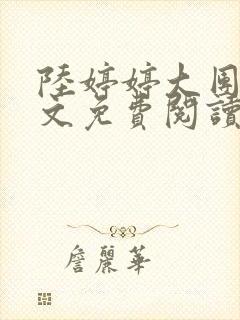 陸婷婷大團
文免費閱讀
詹麗華